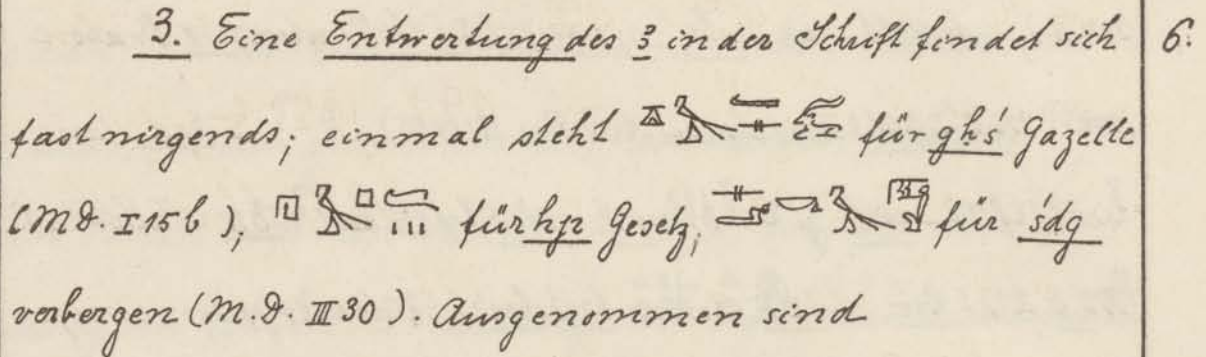 3. Eine Entwertung des ꜣ in der Schrift findet sich 6.
fast nirgends; einmal steht für gḥś Gazelle
(M.D. I 15 b), für hp Gesetz, für śdg
verbergen (M.D. III 30). Ausgenommen sind